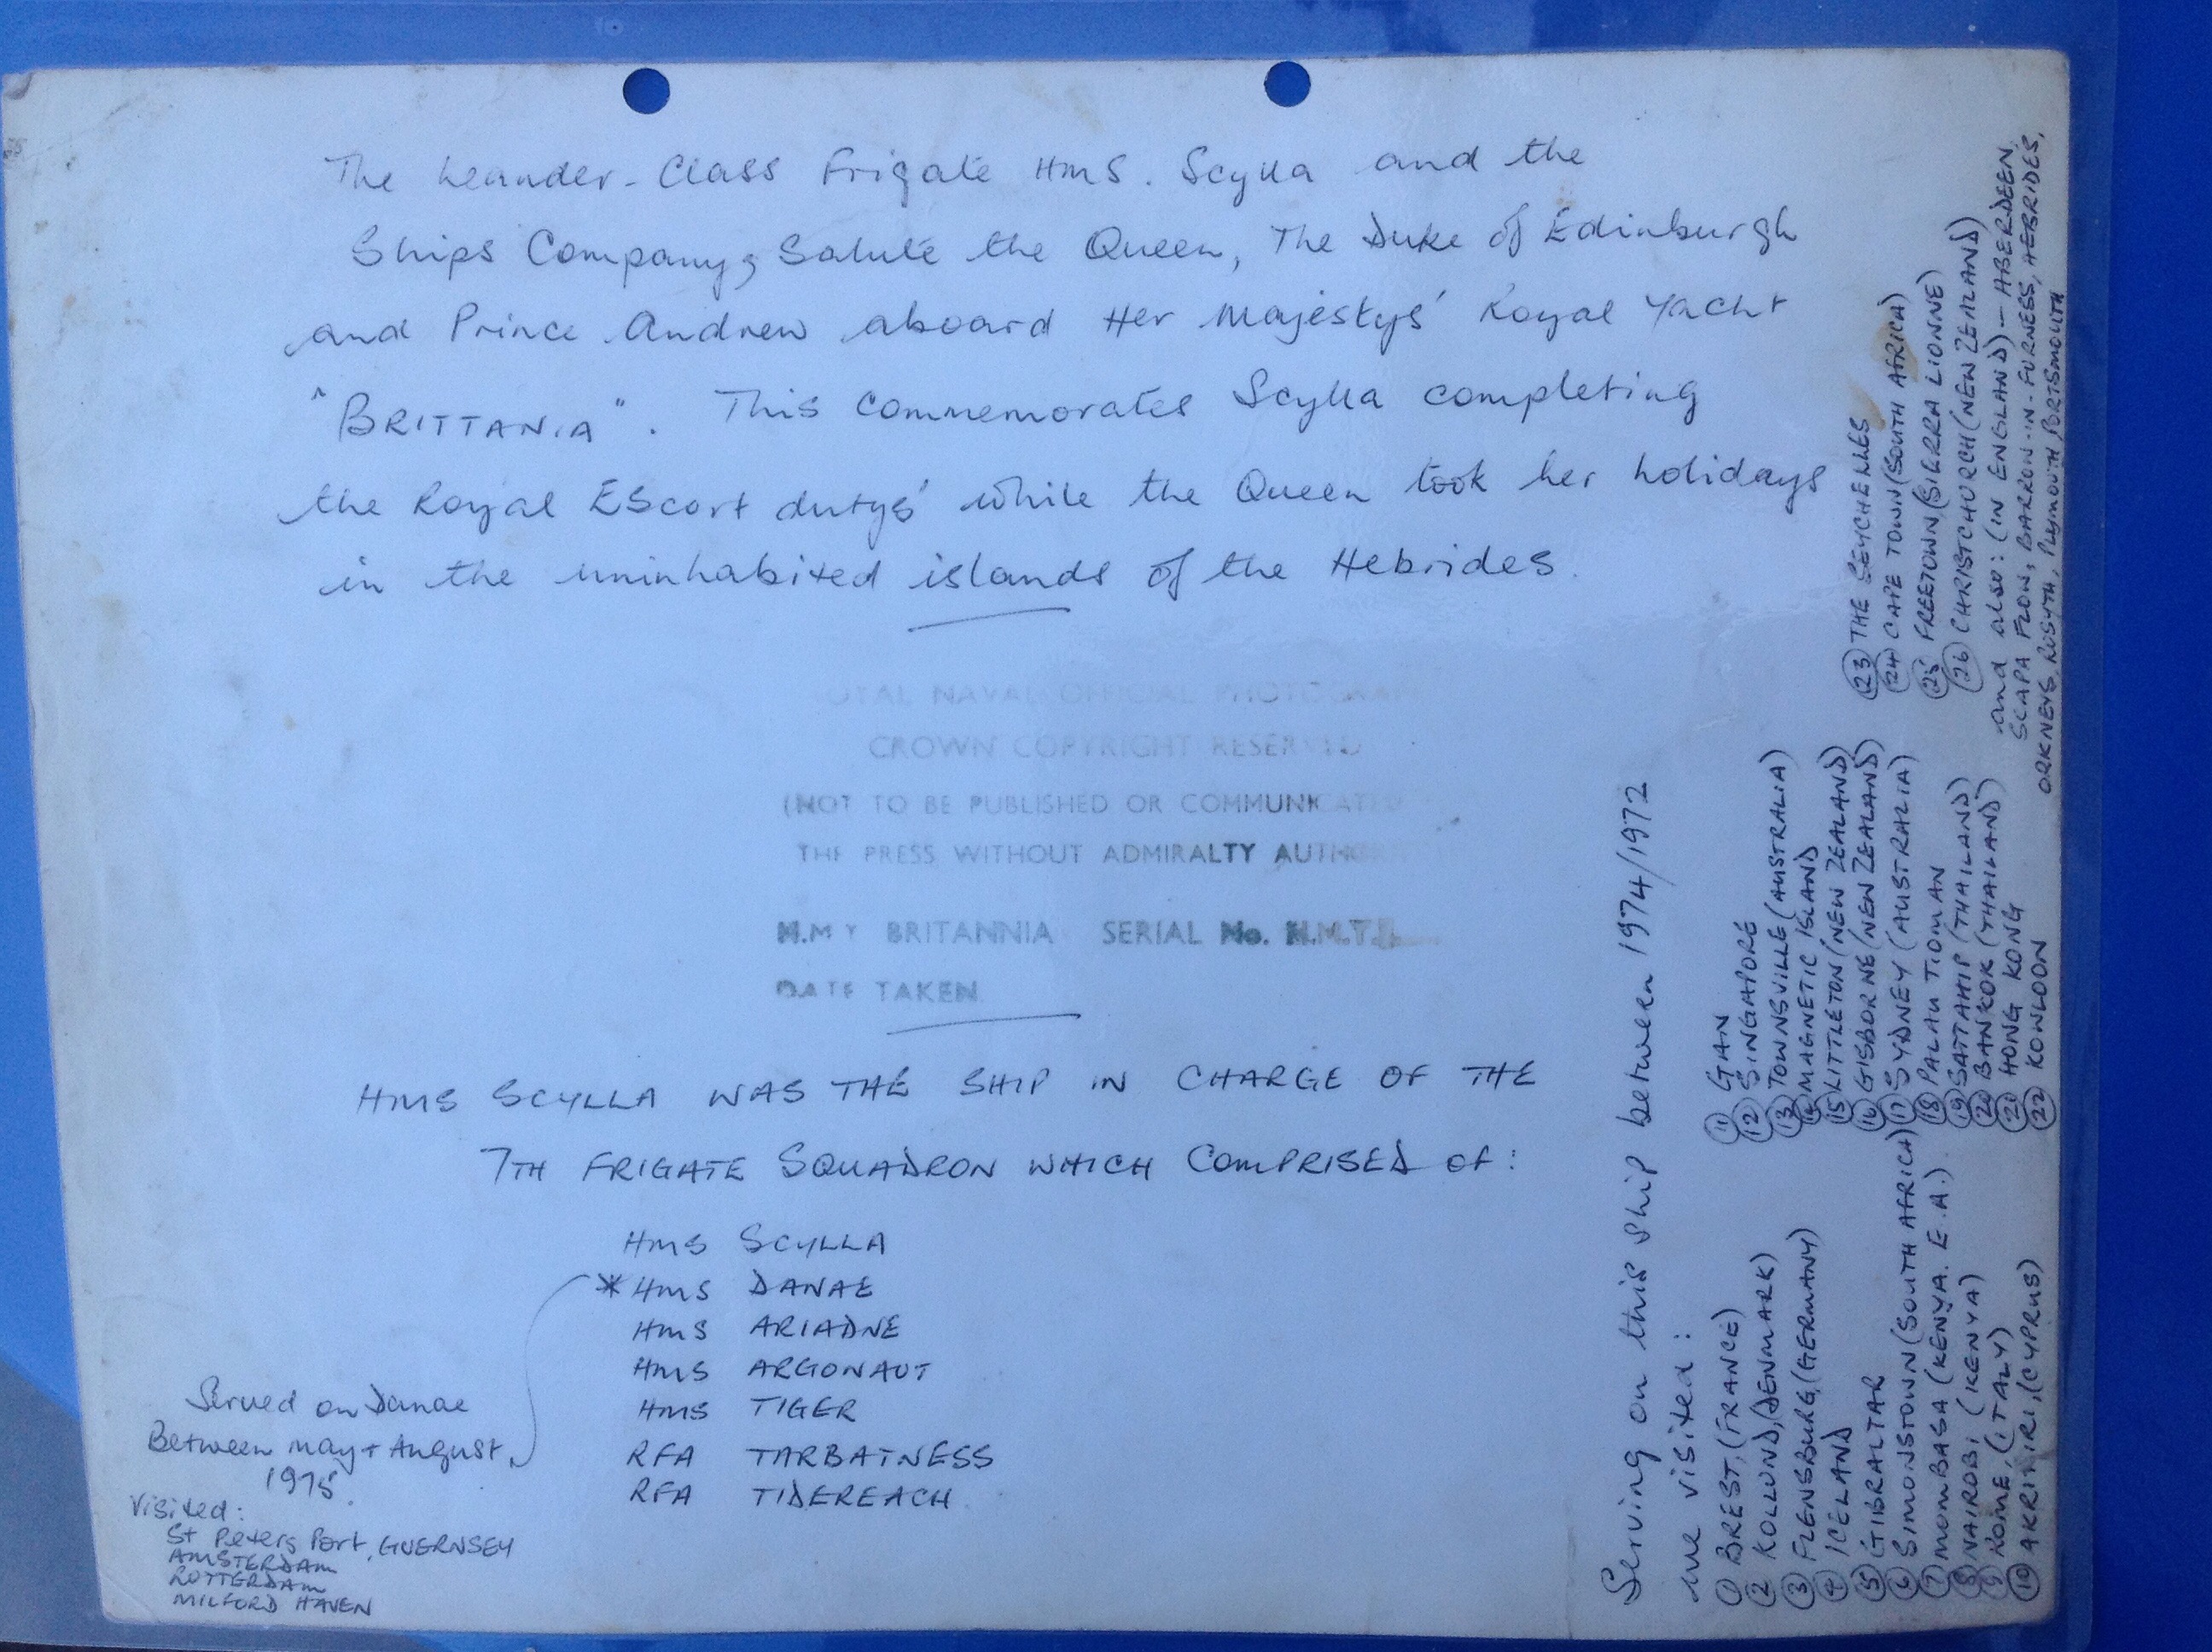 The Leander-Class Frigate Hms. Scylla and the
Ships Company, Salute the Queen, The Duke of Edinburgh
and Prince Andrew aboard Her Majestys' Royal Yacht
"BRITTANIA". This Commemorates Scylla completing
the Royal Escort dutys' while the Queen took her holidays
in the uninhabited islands of the Hebrides.
NAVAL OFFICIAL
CROWN COPYRIGHT RESERVED
(NOT TO BE PUBLISHED OR
THE PRESS WITHOUT ADMIRALTY
H.M.Y BRITANNIA SERIAL No.
DATE TAKEN
HMS SCYLLA WAS THE SHIP IN CHARGE OF THE
7TH FRIGATE SQUADRON WHICH COMPRISED OF:
HMS SCYLLA
*HMS DANAE
HMS ARIADNE
HMS ARGONAUT
HMS TIGER
RFA TARBATNESS
RFA TIDEREACH
Served on Danae
Between may + August,
1975.
Visited:
St Peters Port, GUERNSEY
AMSTERDAM
ROTTERDAM
MILFORD HAVEN
Serving on this ship between 1974/1972
we visited:
① BREST, (FRANCE)
② KOLLUND, (DENMARK)
③ FLENSBURG, (GERMANY)
④ ICELAND
⑤ GIBRALTAR
⑥ SIMONSTOWN (SOUTH AFRICA)
⑦ MOMBASA (KENYA. E.A.)
⑧ NAIROBI, (KENYA)
⑨ ROME, (ITALY)
⑩ AKRITIRI, (CYPRUS)
⑪ GAN
⑫ SINGAPORE
⑬ TOWNSVILLE (AUSTRALIA)
⑭ MAGNETIC ISLAND
⑮ LITTLETON (NEW ZEALAND)
⑯ GISBORNE (NEW ZEALAND)
⑰ SYDNEY (AUSTRALIA)
⑱ PALAU TIOMAN
⑲ SATTAHIP (THAILAND)
⑳ BANKOK (THAILAND)
㉑ HONG KONG
㉒ KOWLOON
㉓ THE SEYCHELLES
㉔ CAPE TOWN (SOUTH AFRICA)
㉕ FREETOWN (SIERRA LIONNE)
㉖ CHRISTCHURCH (NEW ZEALAND)
and also: (IN ENGLAND) - ABERDEEN,
SCAPA FLOW, BARRON-IN-FURNESS, HEBRIDES,
ORKNEYS, ROSYTH, PLYMOUTH, PORTSMOUTH